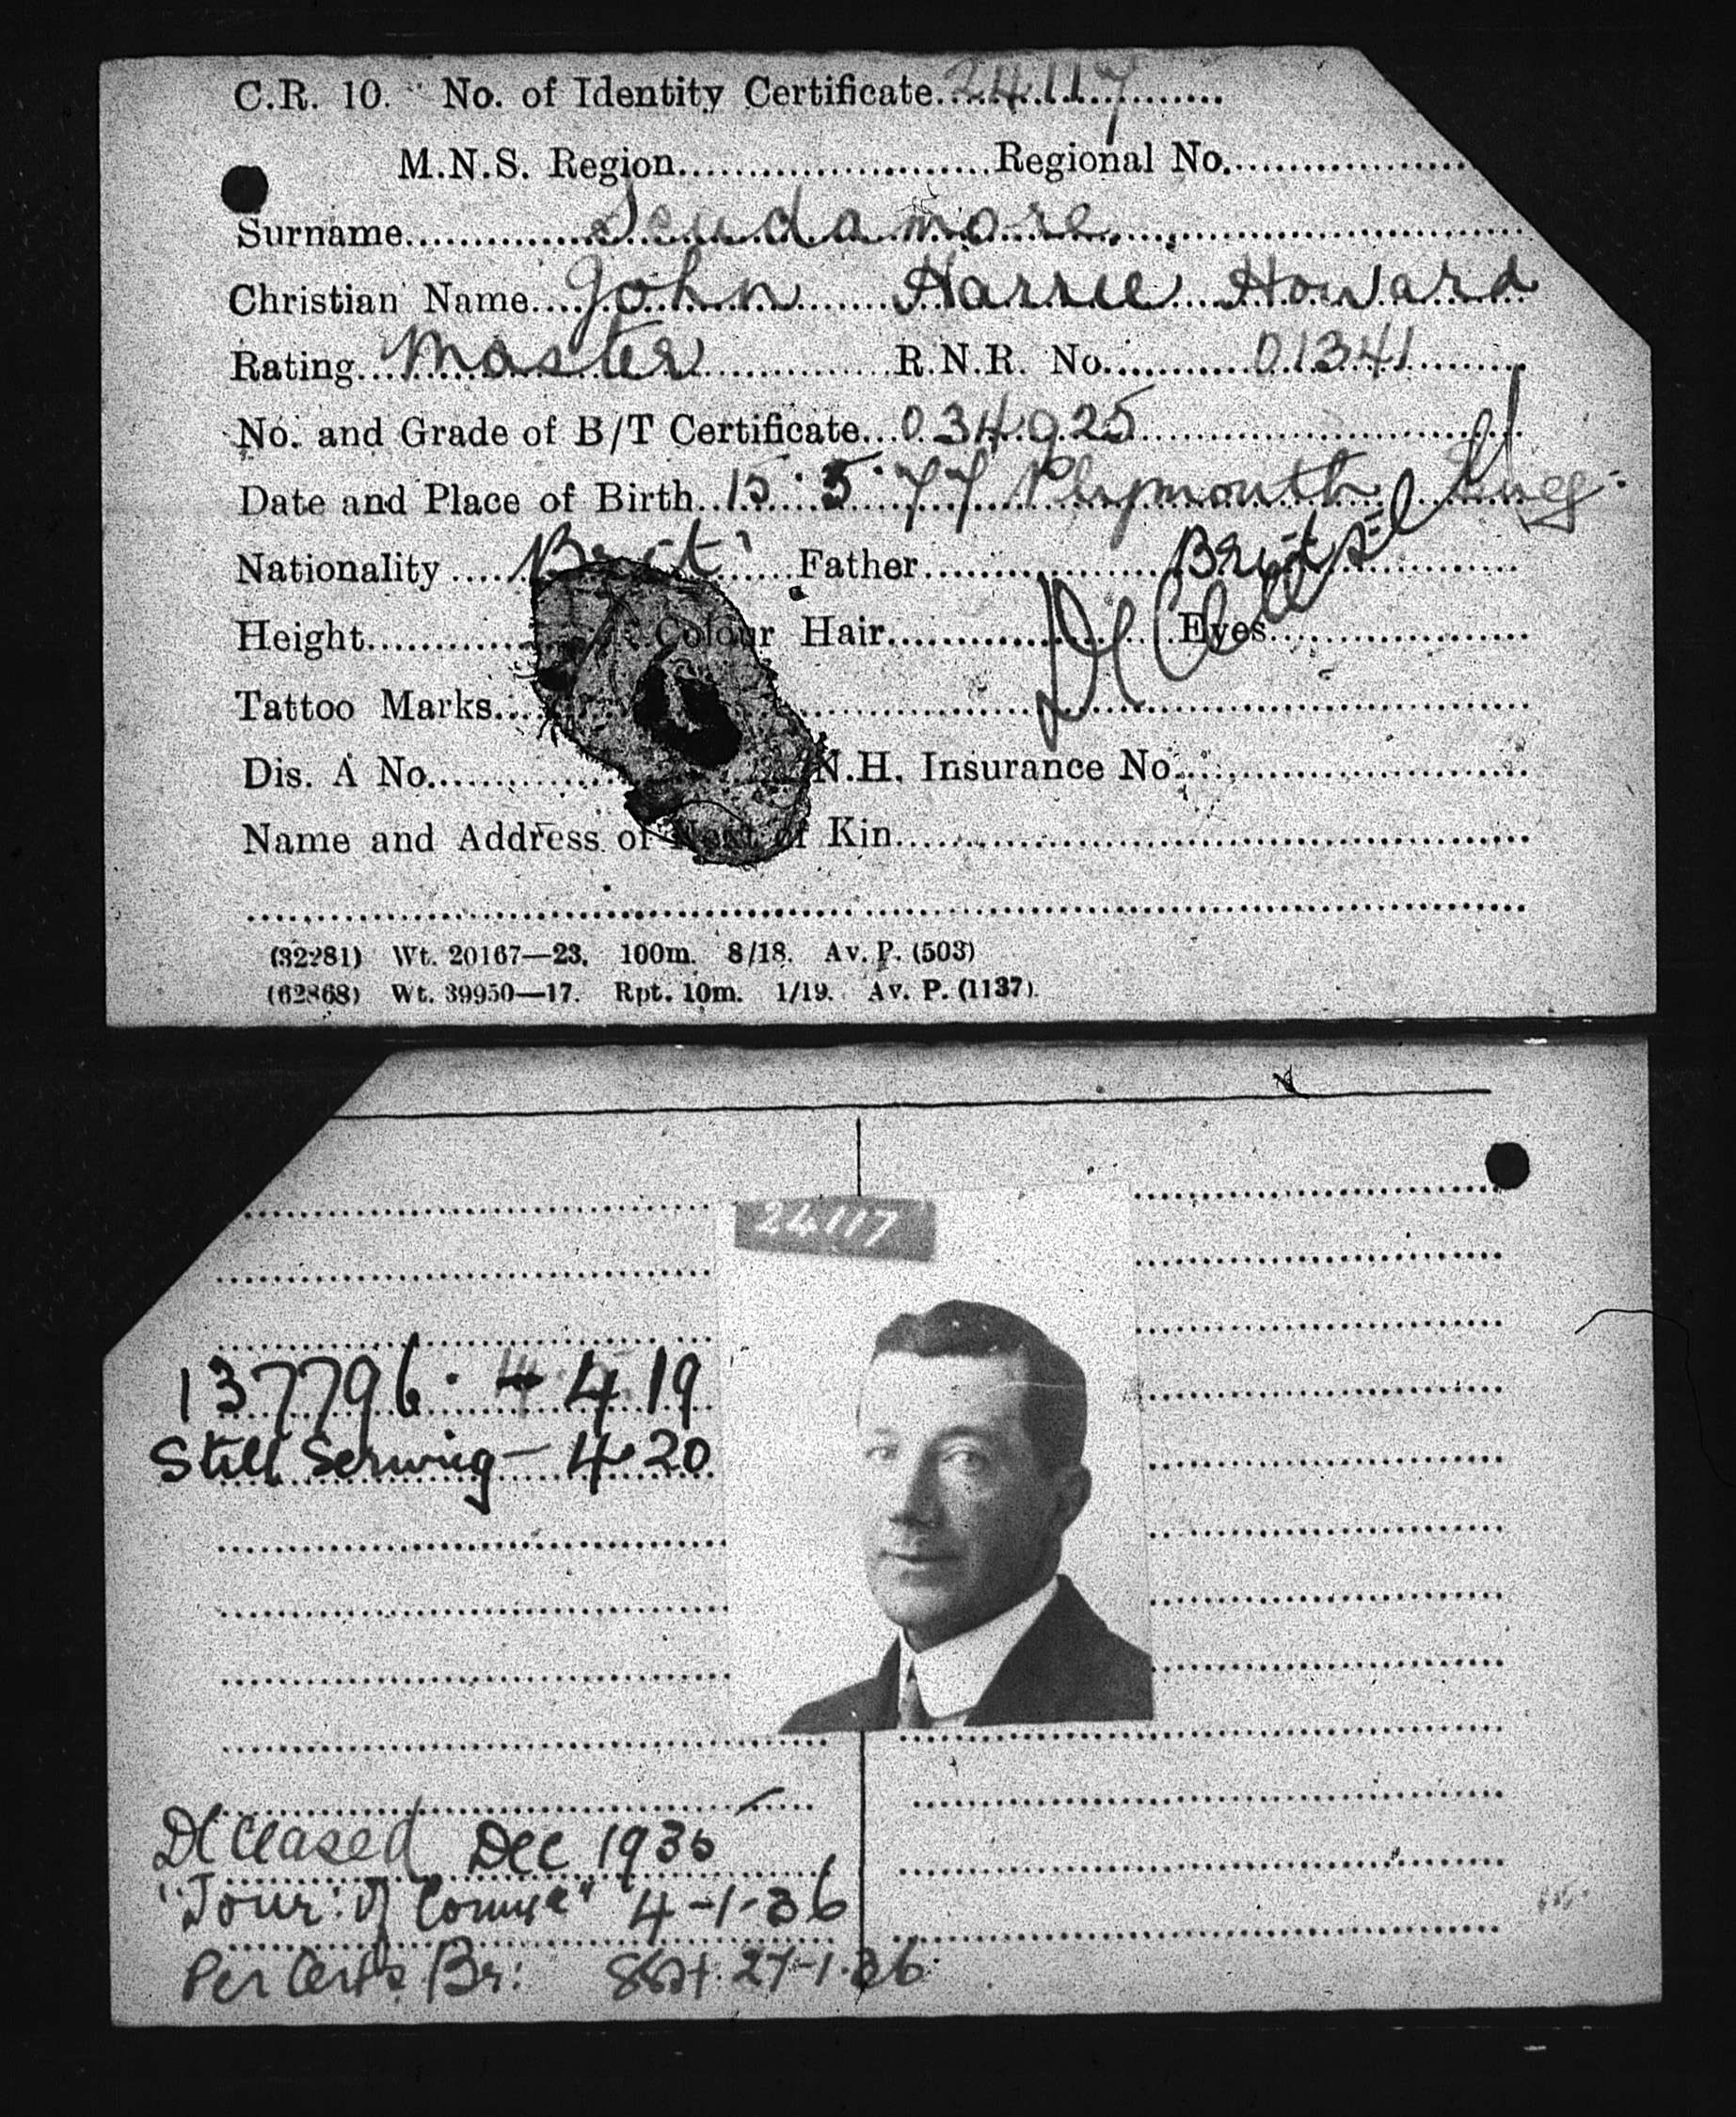 C.R. 10. No. of Identity Certificate 24117
M.N.S. Region Regional No.
Surname Scudamore.
Christian Name John Harrie Howard
Rating Master R.N.R. No. 01341
No. and Grade of B/T Certificate 034925
Date and Place of Birth 15.5.77 Plymouth
Nationality Brit Father Brit
Height Colour Hair Eyes
Deceased
Tattoo Marks
Dis. A No. N.H. Insurance No.
Name and Address of Next of Kin
(32281) Wt. 20167—23. 100m. 8/18. Av. P. (503)
(62868) Wt. 39950—17. Rpt. 10m. 1/19. Av. P. (1137).
24117
137796. 4 4 19
Still Serving — 4 20
Deceased Dec 1935
"Jour: of Comm'e" 4-1-36
Per Certs. Br: 27-1-36